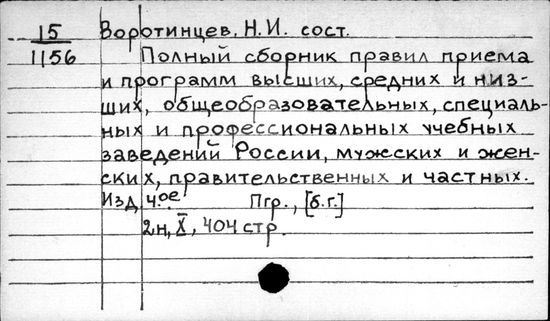 15 Воротинцев, Н.И. сост.
1156 Полный сборник правил приема
и программ высших, средних и низ-
ших, общеобразовательных, специаль-
ных и профессиональных учебных
заведений России, мужских и жен-
ских, правительственных и частных.
Изд. 4ое Пгр., [б.г.]
2н, X, 404 стр.